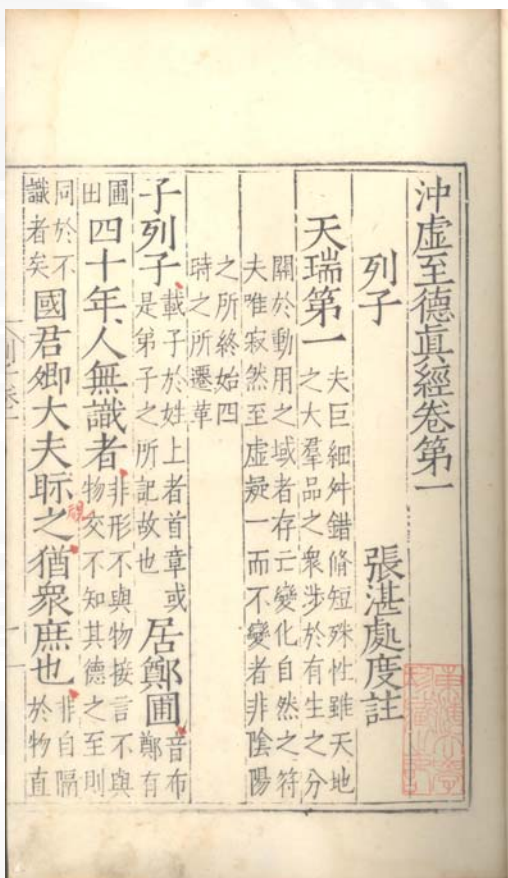 沖虛至德眞經卷第一
列子 張湛處度註
天瑞第一
夫巨細舛錯脩短殊性雖天地
之大羣品之衆涉於有生之分
關於動用之域者存亡變化自然之符
夫唯寂然至虛疑一而不變者非陰陽
之所終始四
時之所遷革
子列子
載子於姓上者首章或
是弟子之所記故也
居鄭圃
音布
鄭有
圃
田
四十年人無識者
非形不與物接言不與
物交不知其德之至則
同於不
識者矣
國君卿大夫眎之猶衆庶也
非自隔
於物直